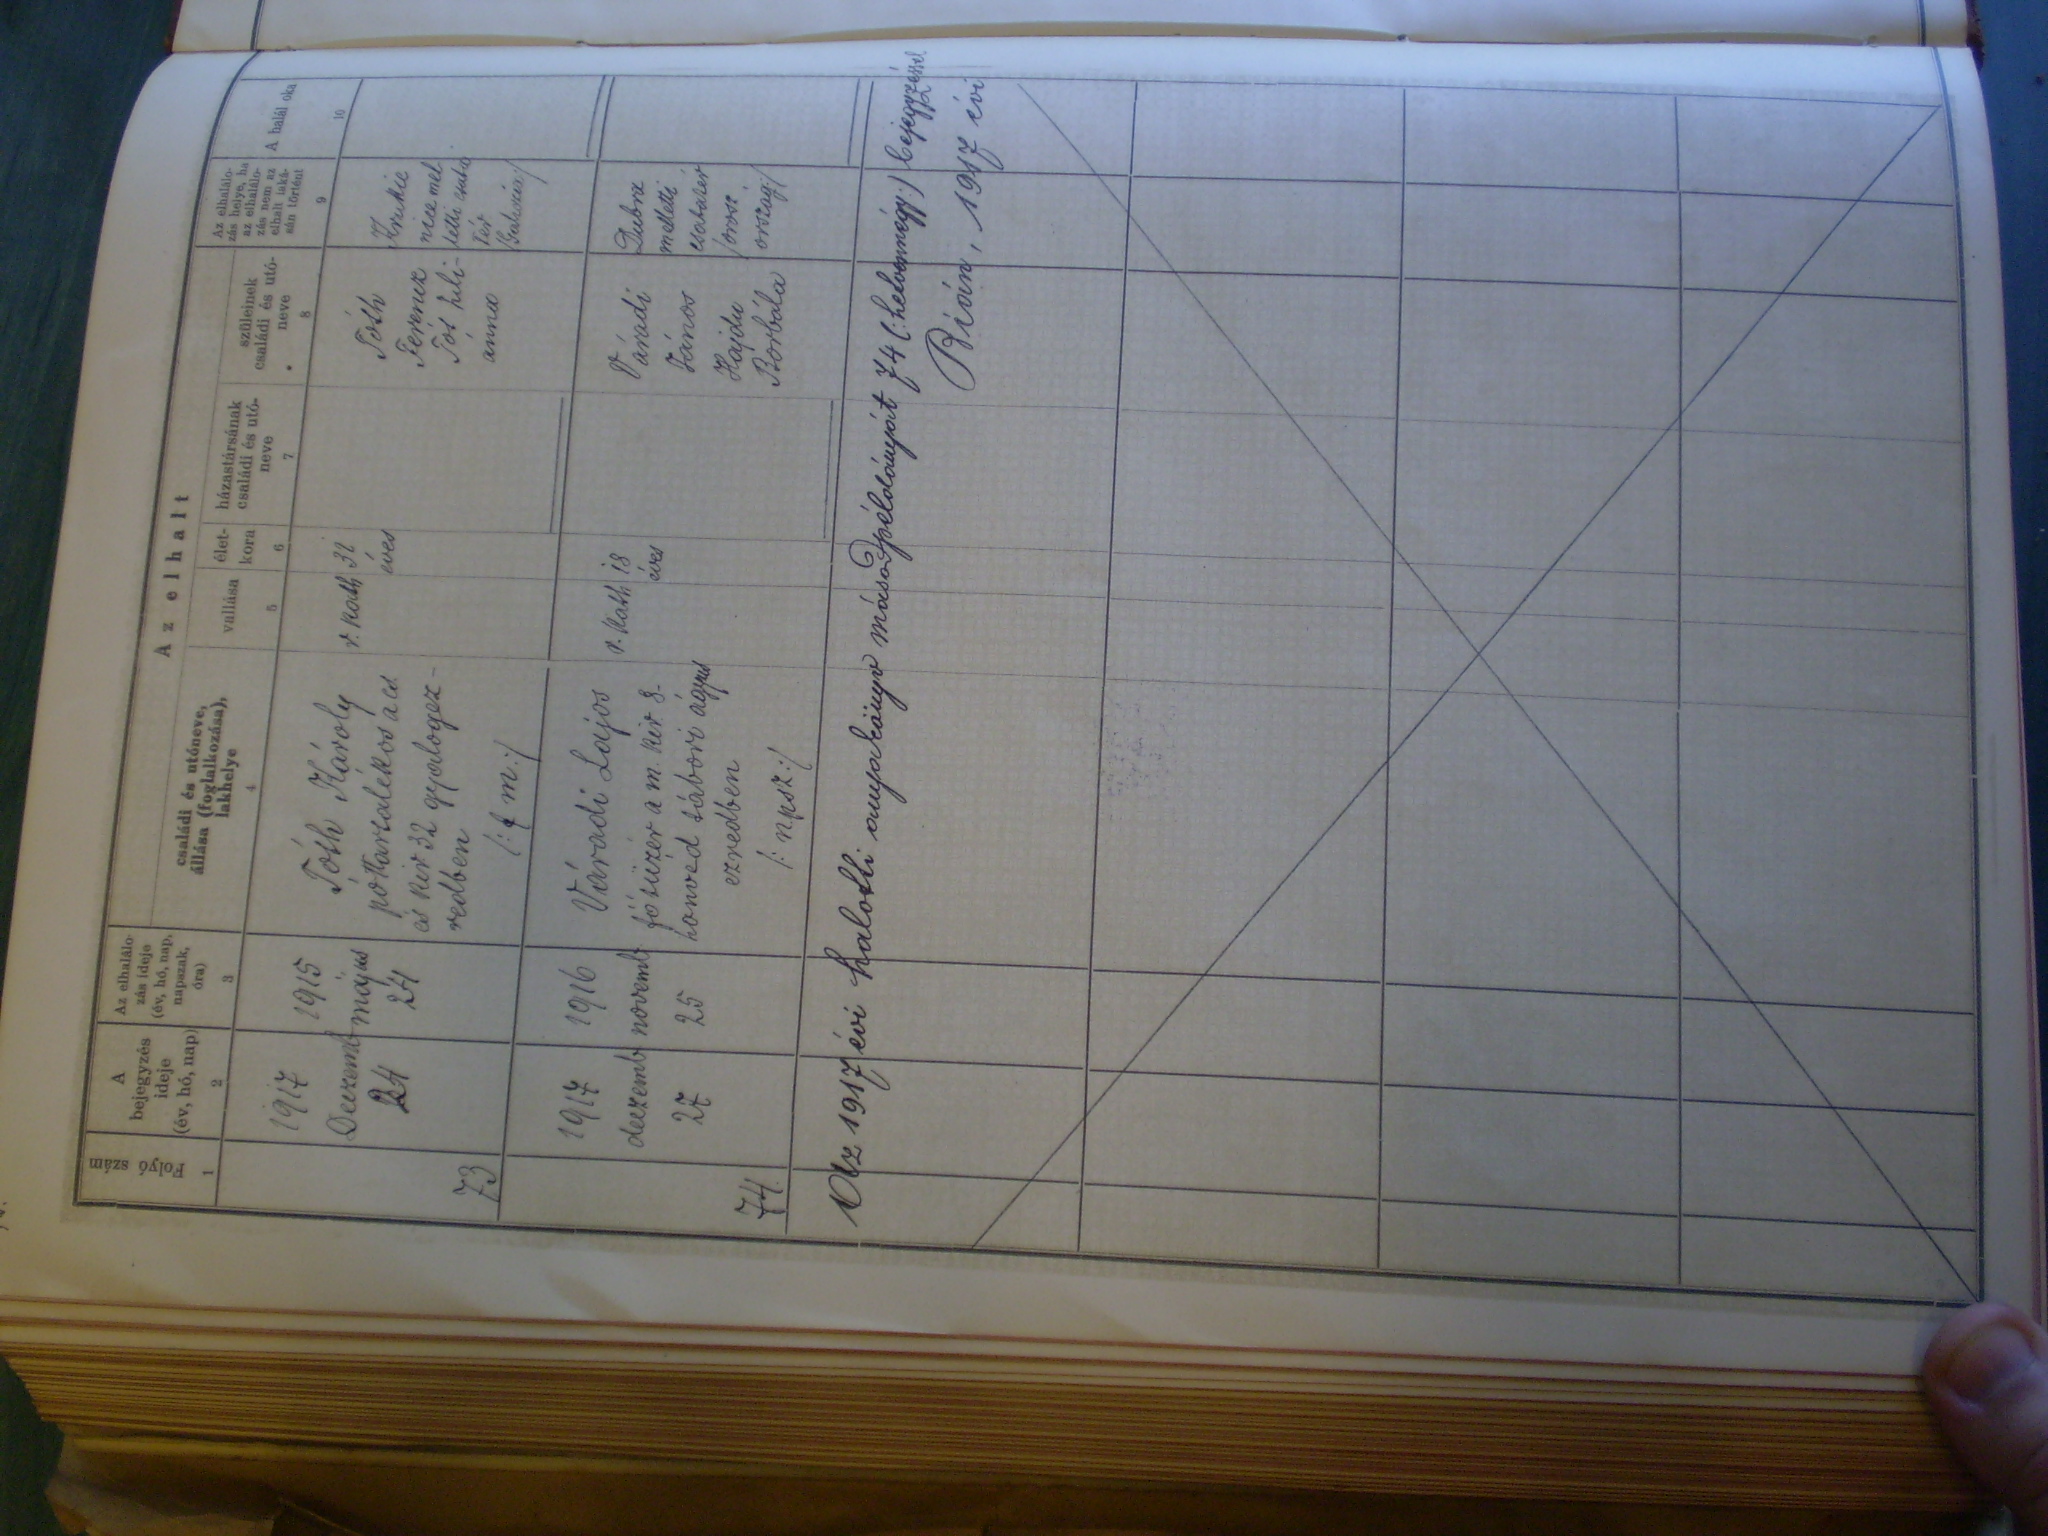 Az elhalt
Folyó szám
A
bejegyzés
ideje
(év, hó, nap)
Az elhalálo-
zás ideje
(év, hó, nap,
napszak,
óra)
családi és utóneve,
állása (foglalkozása),
lakhelye
vallása
élet-
kora
házastársának
családi és utó-
neve
szüleinek
családi és utó-
neve
Az elhalálo-
zás helye, ha
az elhalálo-
zás nem az
elhalt laká-
sán történt
A halál oka
1 2 3 4 5 6 7 8 9 10
73
1917
Deczemb
24
1915
május
24
Tóth Károly
póttartalékos a cs
és kir 32 gyalogez-
redben
r. kath
32
éves
Tóth
Ferencz
Tót Juli-
ánna
nice mel
letti csata
tér
74.
1917
deczemb
27
1916
novemb
25
Váradi Lajos
főtüzér a m. kir 8.
honvéd tábori ágyus
ezredben
/: npsz :/
r. kath
18
éves
Váradi
János
Hajdu
Borbála
Dubnz
melletti
csatatér
/orosz
ország:/
Az 1917 évi halotti anyakönyv másodpéldányát 74 (:hetvennégy:) bejegyzéssel
1917 évi